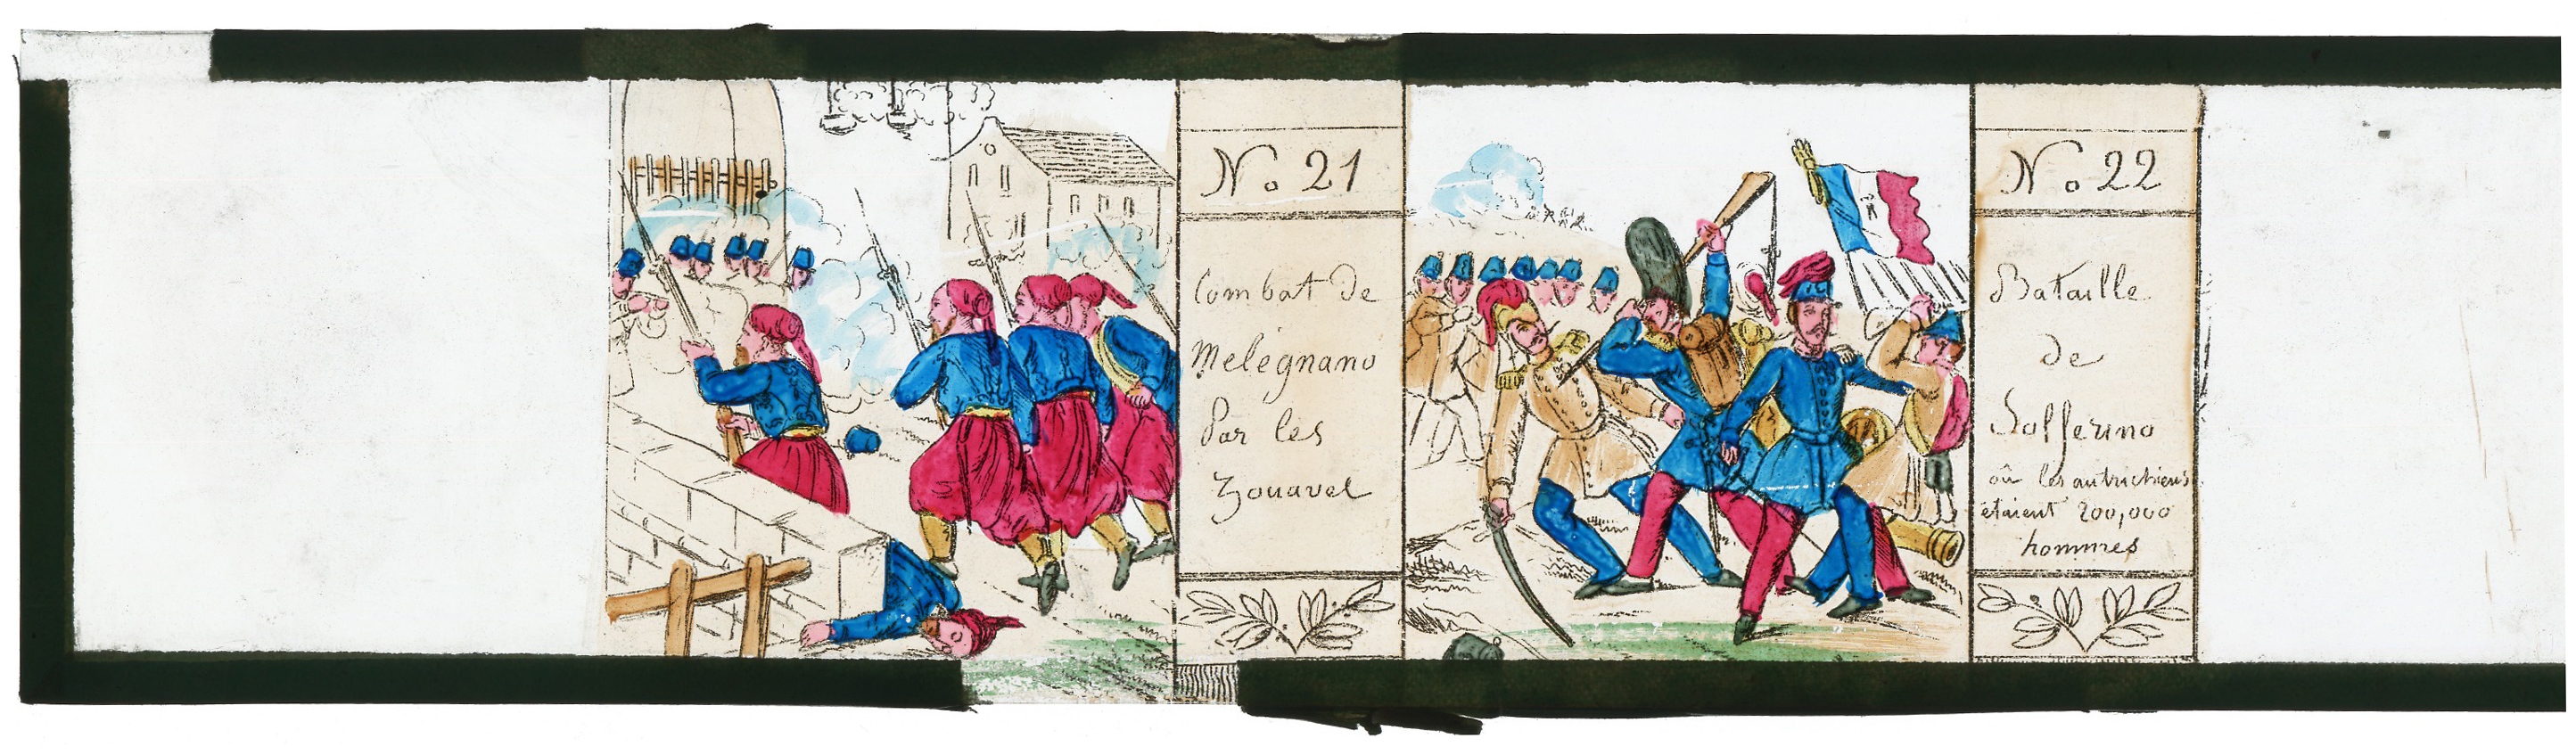 No 21
Combat de
Melégnano
Par les
Zouavel
No 22
Bataille
de
Solferino
où les autrichiens
étaient 200,000
hommes